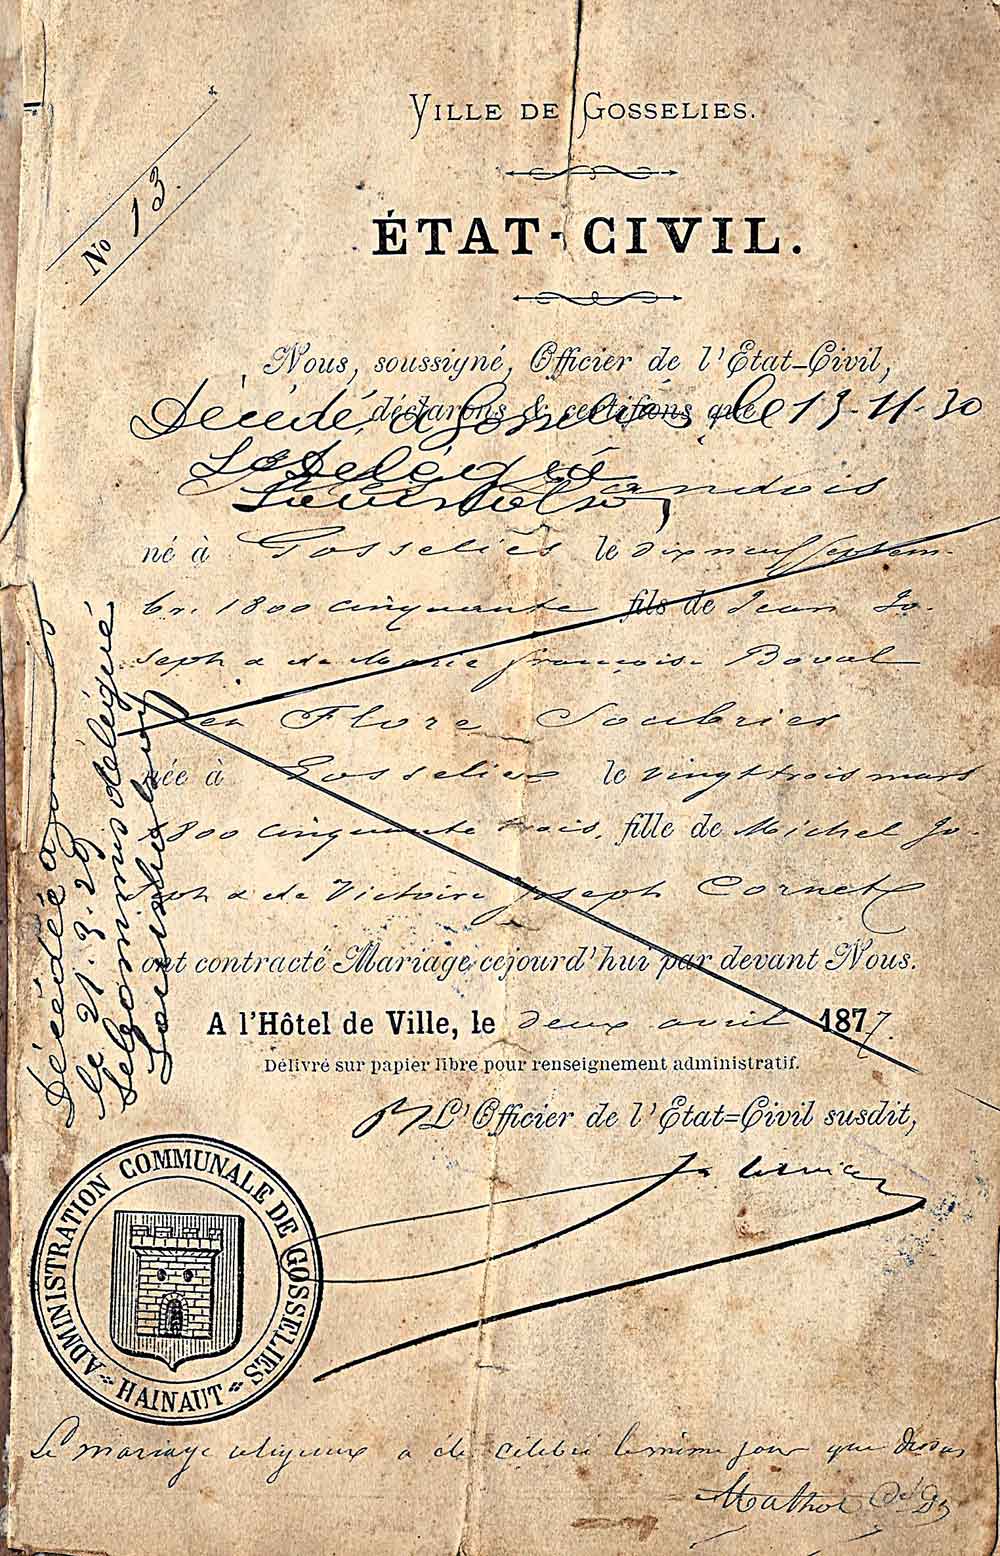 VILLE DE GOSSELIES.
No 13
ÉTAT-CIVIL.
Nous, soussigné, Officier de l'État-Civil,
déclarons & certifions que
Décédé à Gosselies le 13-11-30
Le délégué
né à Gosselies le dix neuf septem-
bre 1800 cinquante fils de Jean Jo-
seph & de Marie françoise Boval
et Flore Soubrier
née à Gosselies le vingt trois mars
1800 cinquante trois, fille de Michel Jo-
seph & de Victoire Joseph Cornet
ont contracté Mariage cejourd'hui par devant Nous.
A l'Hôtel de Ville, le deux avril 1877.
Délivré sur papier libre pour renseignement administratif.
L'Officier de l'État-Civil susdit,
Décédée à
le 21.3.29
Le Commis délégué
ADMINISTRATION COMMUNALE DE GOSSELIES
HAINAUT
Le mariage religieux a été célébré le même jour que dessus